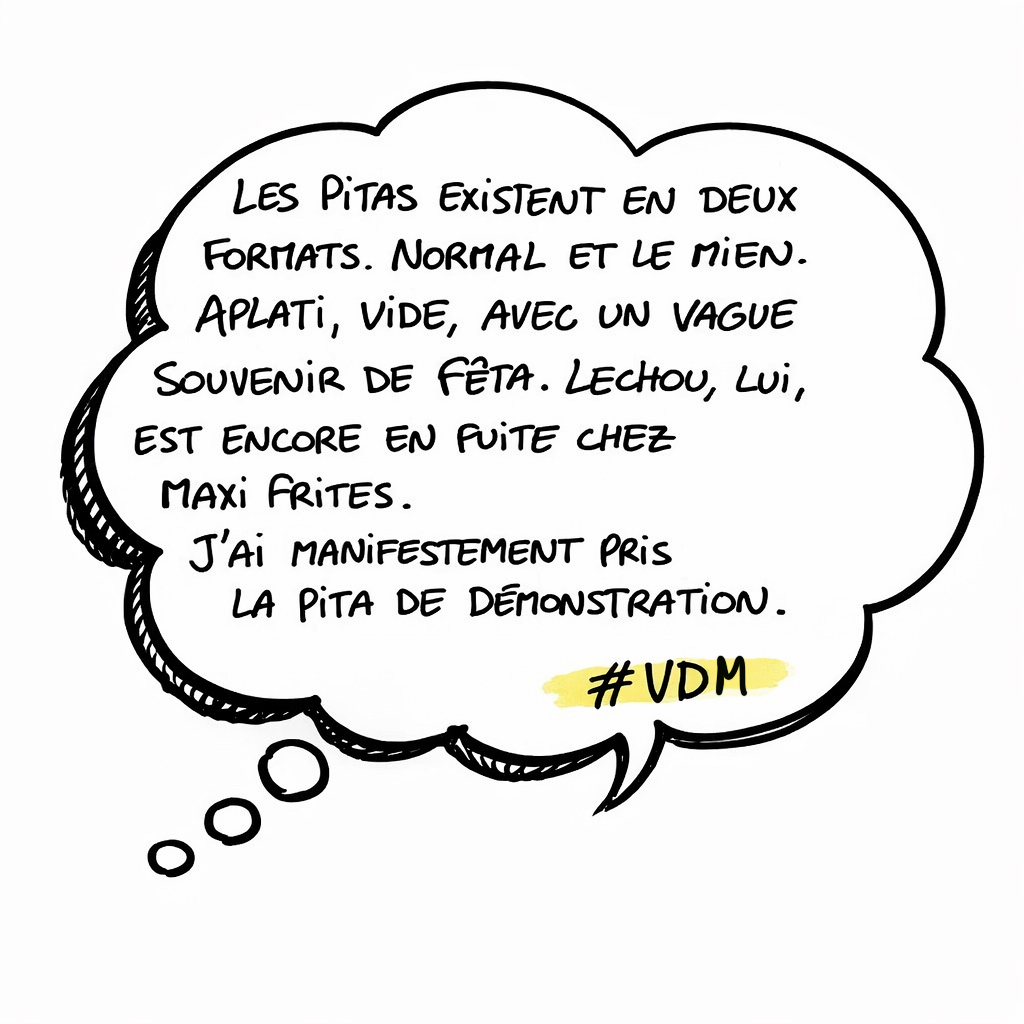 LES PiTAS EXiSTENT EN DEUX
FORMATS. NORMAL ET LE MiEN.
APLATi, ViDE, AVEC UN VAGUE
SOUVENiR DE FÊTA. LECHOU, LUi,
EST ENCORE EN FUiTE CHEZ
MAXi FRiTES.
J'Ai MANiFESTEMENT PRiS
LA PiTA DE DÉMONSTRATiON.
#VDM